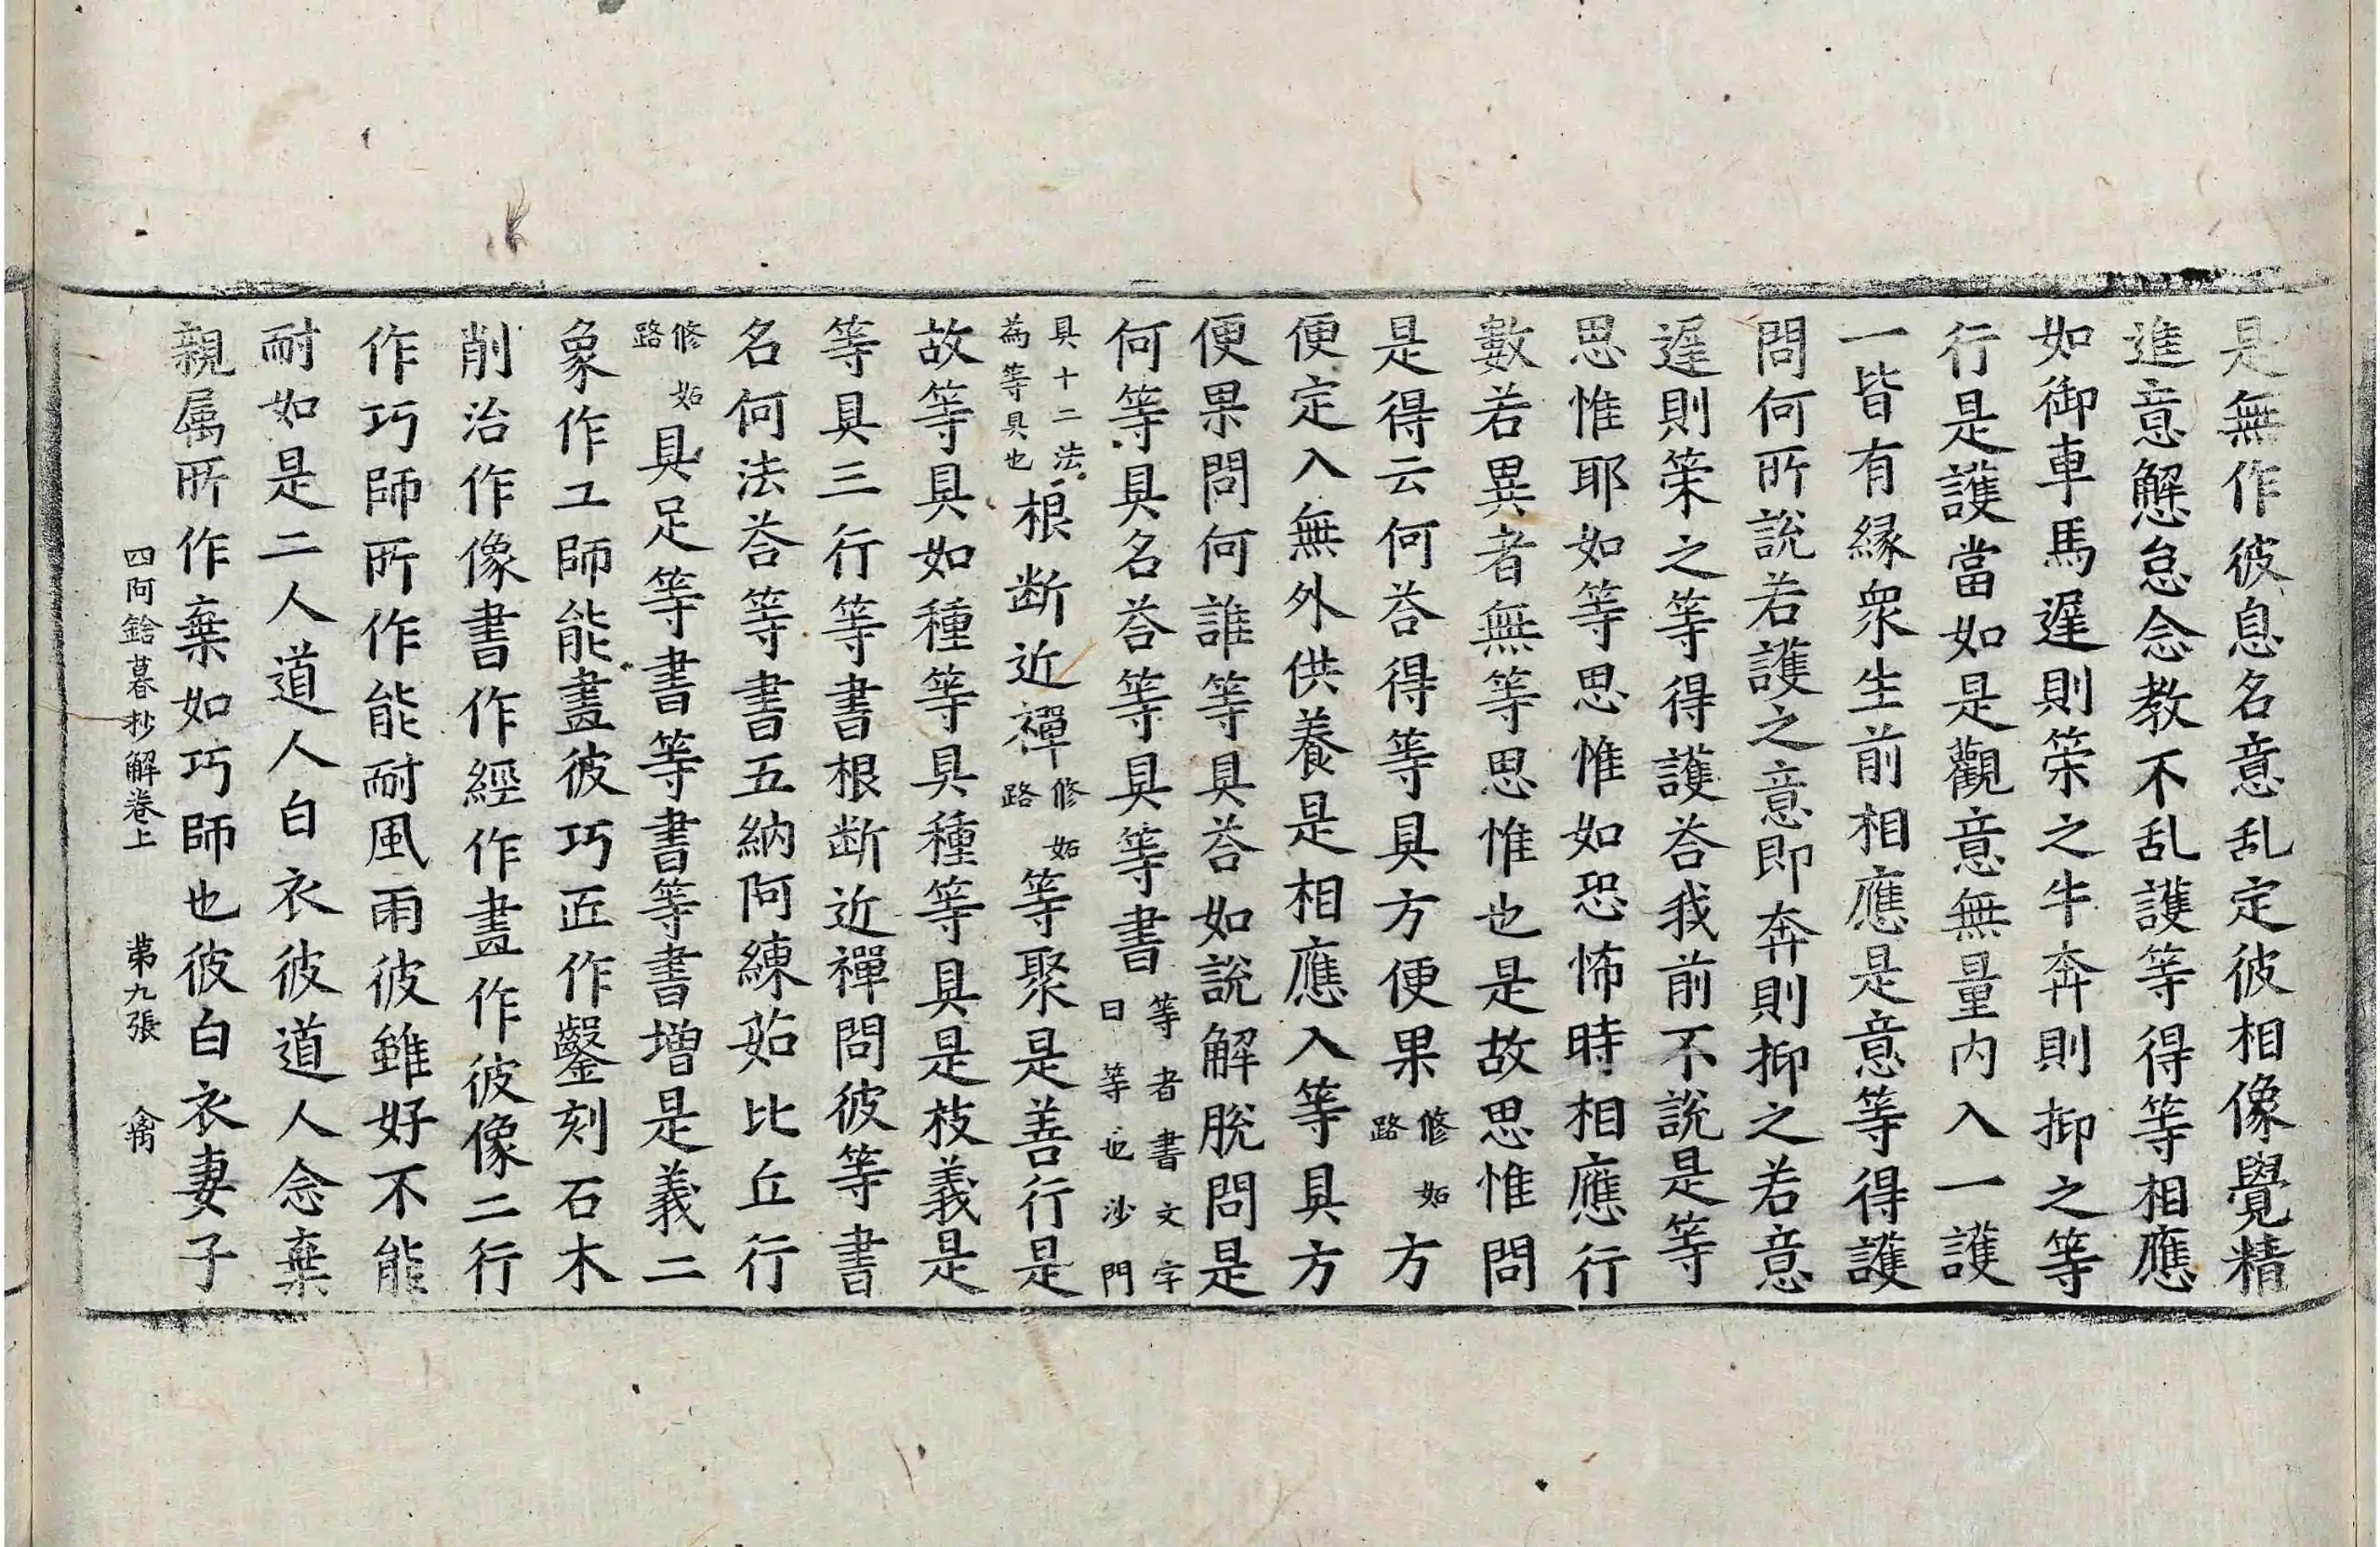 是無作彼息名意乱定彼相像覺精
進意懈怠念教不乱護等得等相應
如御車馬遲則策之牛奔則抑之等
行是護當如是觀意無量内入一護
一皆有緣衆生前相應是意等得護
問何所說若護之意即奔則抑之若意
遲則策之等得護荅我前不說是等
思惟耶如等思惟如恐怖時相應行
數若異者無等思惟也是故思惟問
是得云何荅得等具方便果修妬路方
便定入無外供養是相應入等具方
便果問何誰等具荅如說解脫問是
何等具名荅等具等書等者書文字曰等也沙門
具十二法為等具也根断近禪修妬路等聚是善行是
故等具如種等具種等具是枝義是
等具三行等書根断近禪問彼等書
名何法荅等書五納阿練茹比丘行
修妬路具足等書等書等書增是義二
象作工師能畫彼巧匠作鑿刻石木
削治作像書作經作畫作彼像二行
作巧師所作能耐風雨彼雖好不能
耐如是二人道人白衣彼道人念棄
親属所作棄如巧師也彼白衣妻子
四阿鋡暮抄解卷上 第九張